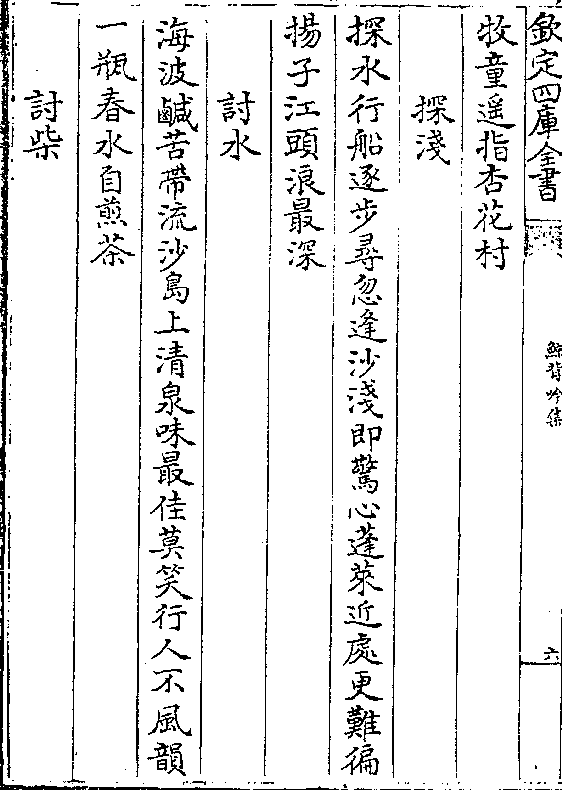 欽定四庫全書
鯨背吟集
六
牧童遥指杏花村
探淺
探水行船逐步尋忽逢沙淺即驚心蓬萊近處更難徧
揚子江頭浪最深
討水
海波鹹苦帶流沙島上清泉味最佳莫笑行人不風韻
一瓶春水自煎茶
討柴